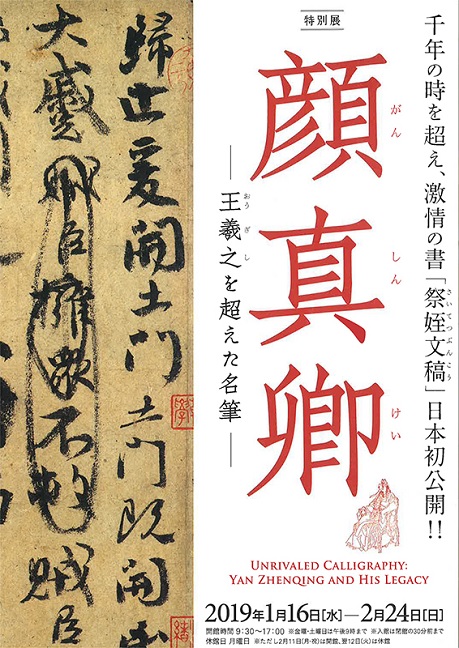 千年の時を超え、激情の書「祭姪文稿」日本初公開!!
さいてつぶんこう
特別展
顔真卿
がん しん けい
―王羲之を超えた名筆―
おう ぎ し
歸止爰開土門土門既開
大蹙賊臣擁衆不救賊臣
UNRIVALED CALLIGRAPHY:
YAN ZHENQING AND HIS LEGACY
2019年1月16日[水]―2月24日[日]
開館時間 9:30~17:00 ※金曜・土曜日は午後9時まで ※入館は閉館の30分前まで
休館日 月曜日 ※ただし2月11日(月・祝)は開館、翌12日(火)は休館